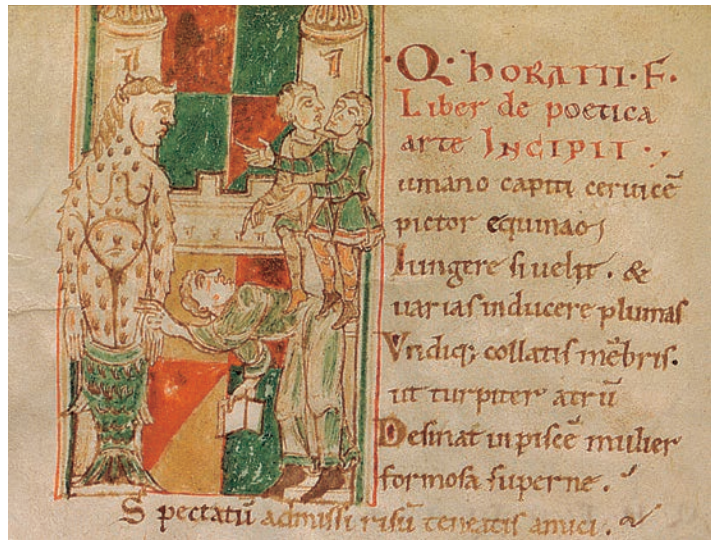 ·Q· hORATII· F·
Liber de poetica
arte INCIPIT ·,
umano capiti cervicē
pictor equinaɔ
Iungere si uelit. &
uarias inducere plumas
Vndiq; collatis mēbris.
ut turpiter atrū
Desinat in piscē mulier
formosa superne.
Spectatū admissi risū teneatis amici.